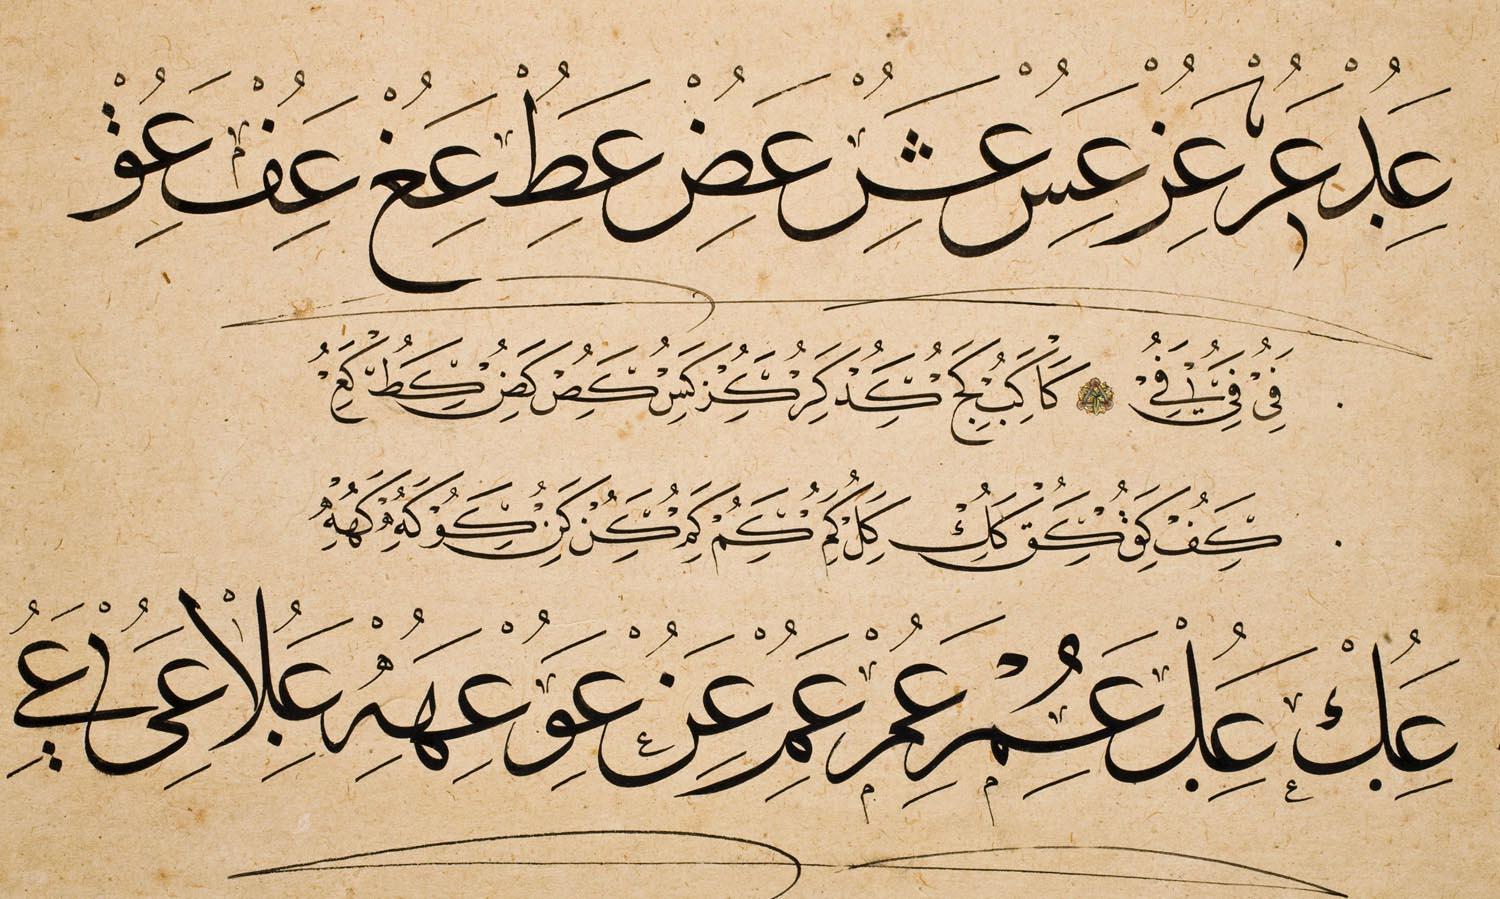 عد عر عز عس عش عض عط عغ عف عق
فى فى فى كا كب كج كد كر كز كس كص كض كط كع
كف كق كق كك كل كم كم كم كن كن كو كه كهه
عك عل عم عم عم عن عو عهه علا عى عے